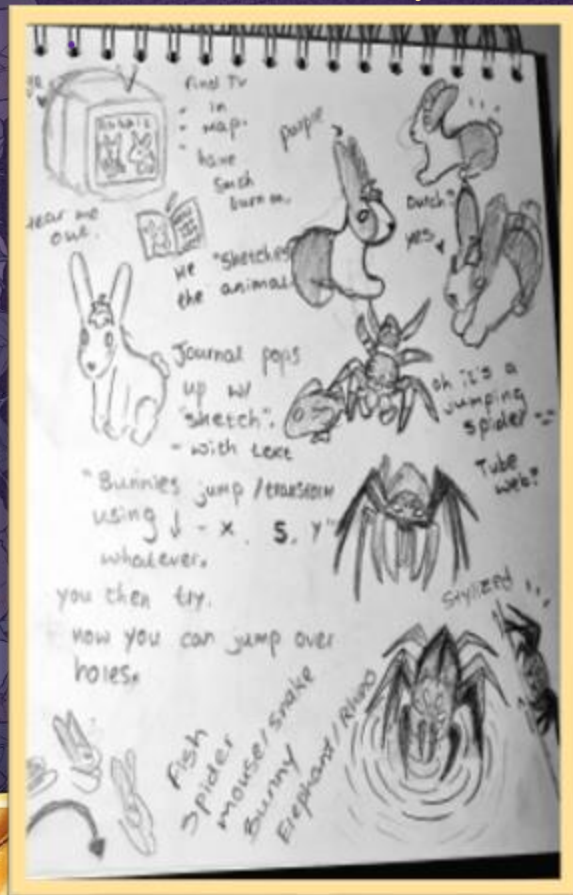 Find TV
- in
- map.
have
Rabbit
purple
tear me
out.
He "sketches"
the animal.
Dutch"
yes
Journal pops
up w/
"sketch".
- with text
oh it's a
jumping
spider --
Tube
web?
"Bunnies jump/transform
using ↓ - X, S, Y"
whatever.
you then try.
now you can jump over
holes.
Stylized
Fish
Spider
mouse/snake
Bunny
Elephant/Rhino